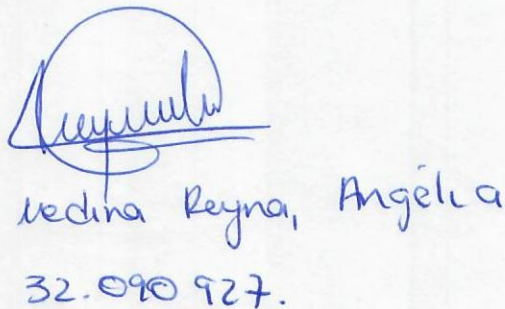 Medina Reyna, Angélica
32.090 927.